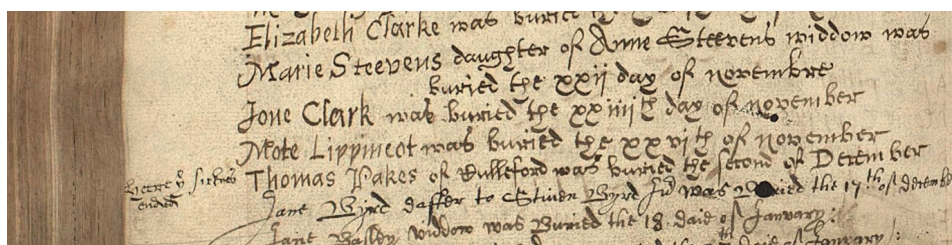 Elizabeth Clarke was buried the
Marie Steevens daughter of Anne Steevens widdow was
buried the xxij day of novembre
Jone Clark was buried the xxiiijth day of november
Mote Lippincot was buried the xxvith of november
Thomas Pakes of Rulleford was buried the second of December
heere ye sicknes
ended
Jane Byrd daffter to Stiven Byrd was Buried the 17th of decemb
Jane Bassley widdow was Buried the 18 daie of January:
daie of January: